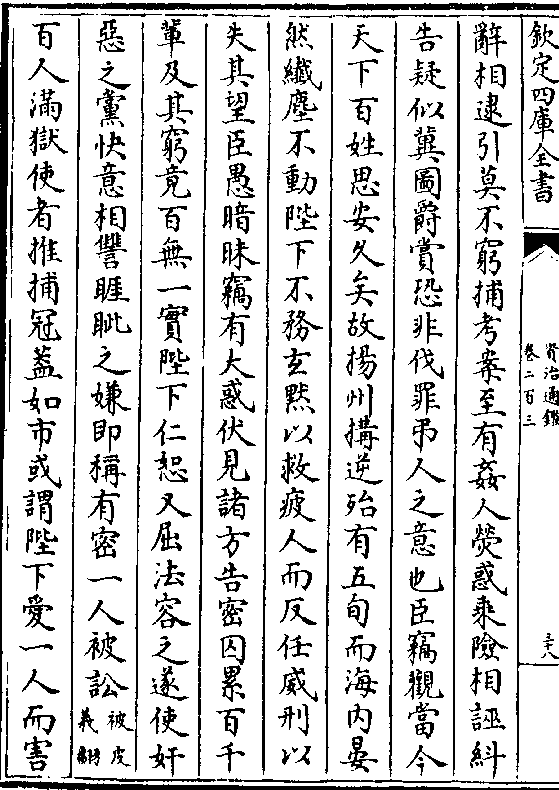 欽定四庫全書
資治通鑑
卷二百三
辭相逮引莫不窮捕考案至有姦人熒惑乘險相誣糾
告疑似冀圖爵賞恐非伐罪弔人之意也臣竊觀當今
天下百姓思安久矣故揚州搆逆殆有五旬而海内晏
然纖塵不動陛下不務玄黙以救疲人而反任威刑以
失其望臣愚暗昧竊有大惑伏見諸方告密囚累百千
輩及其窮竟百無一實陛下仁恕又屈法容之遂使奸
惡之黨快意相讐睚眦之嫌即稱有密一人被訟被皮義翻
百人滿獄使者推捕冠蓋如市或謂陛下愛一人而害